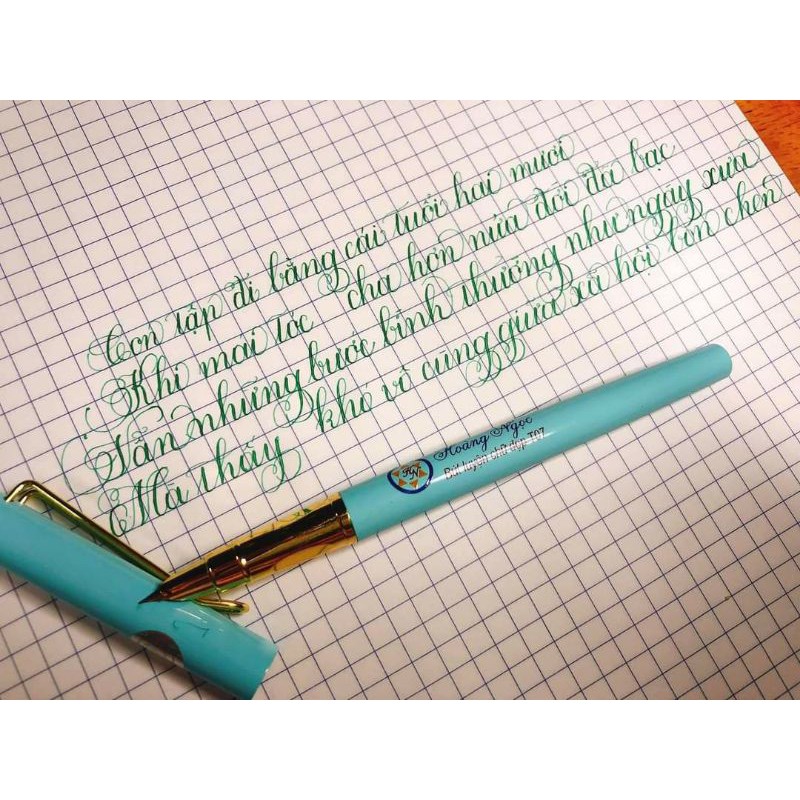 Con tập đi bằng cái tuổi hai mươi
Khi mai tóc cha hơn nửa đời đã bạc
Vẫn những bước bình thường như ngày xưa
Mà thấy khó vô cùng giữa xã hội bon chen
HN
Hoàng Ngọc
Bút luyện chữ đẹp T07